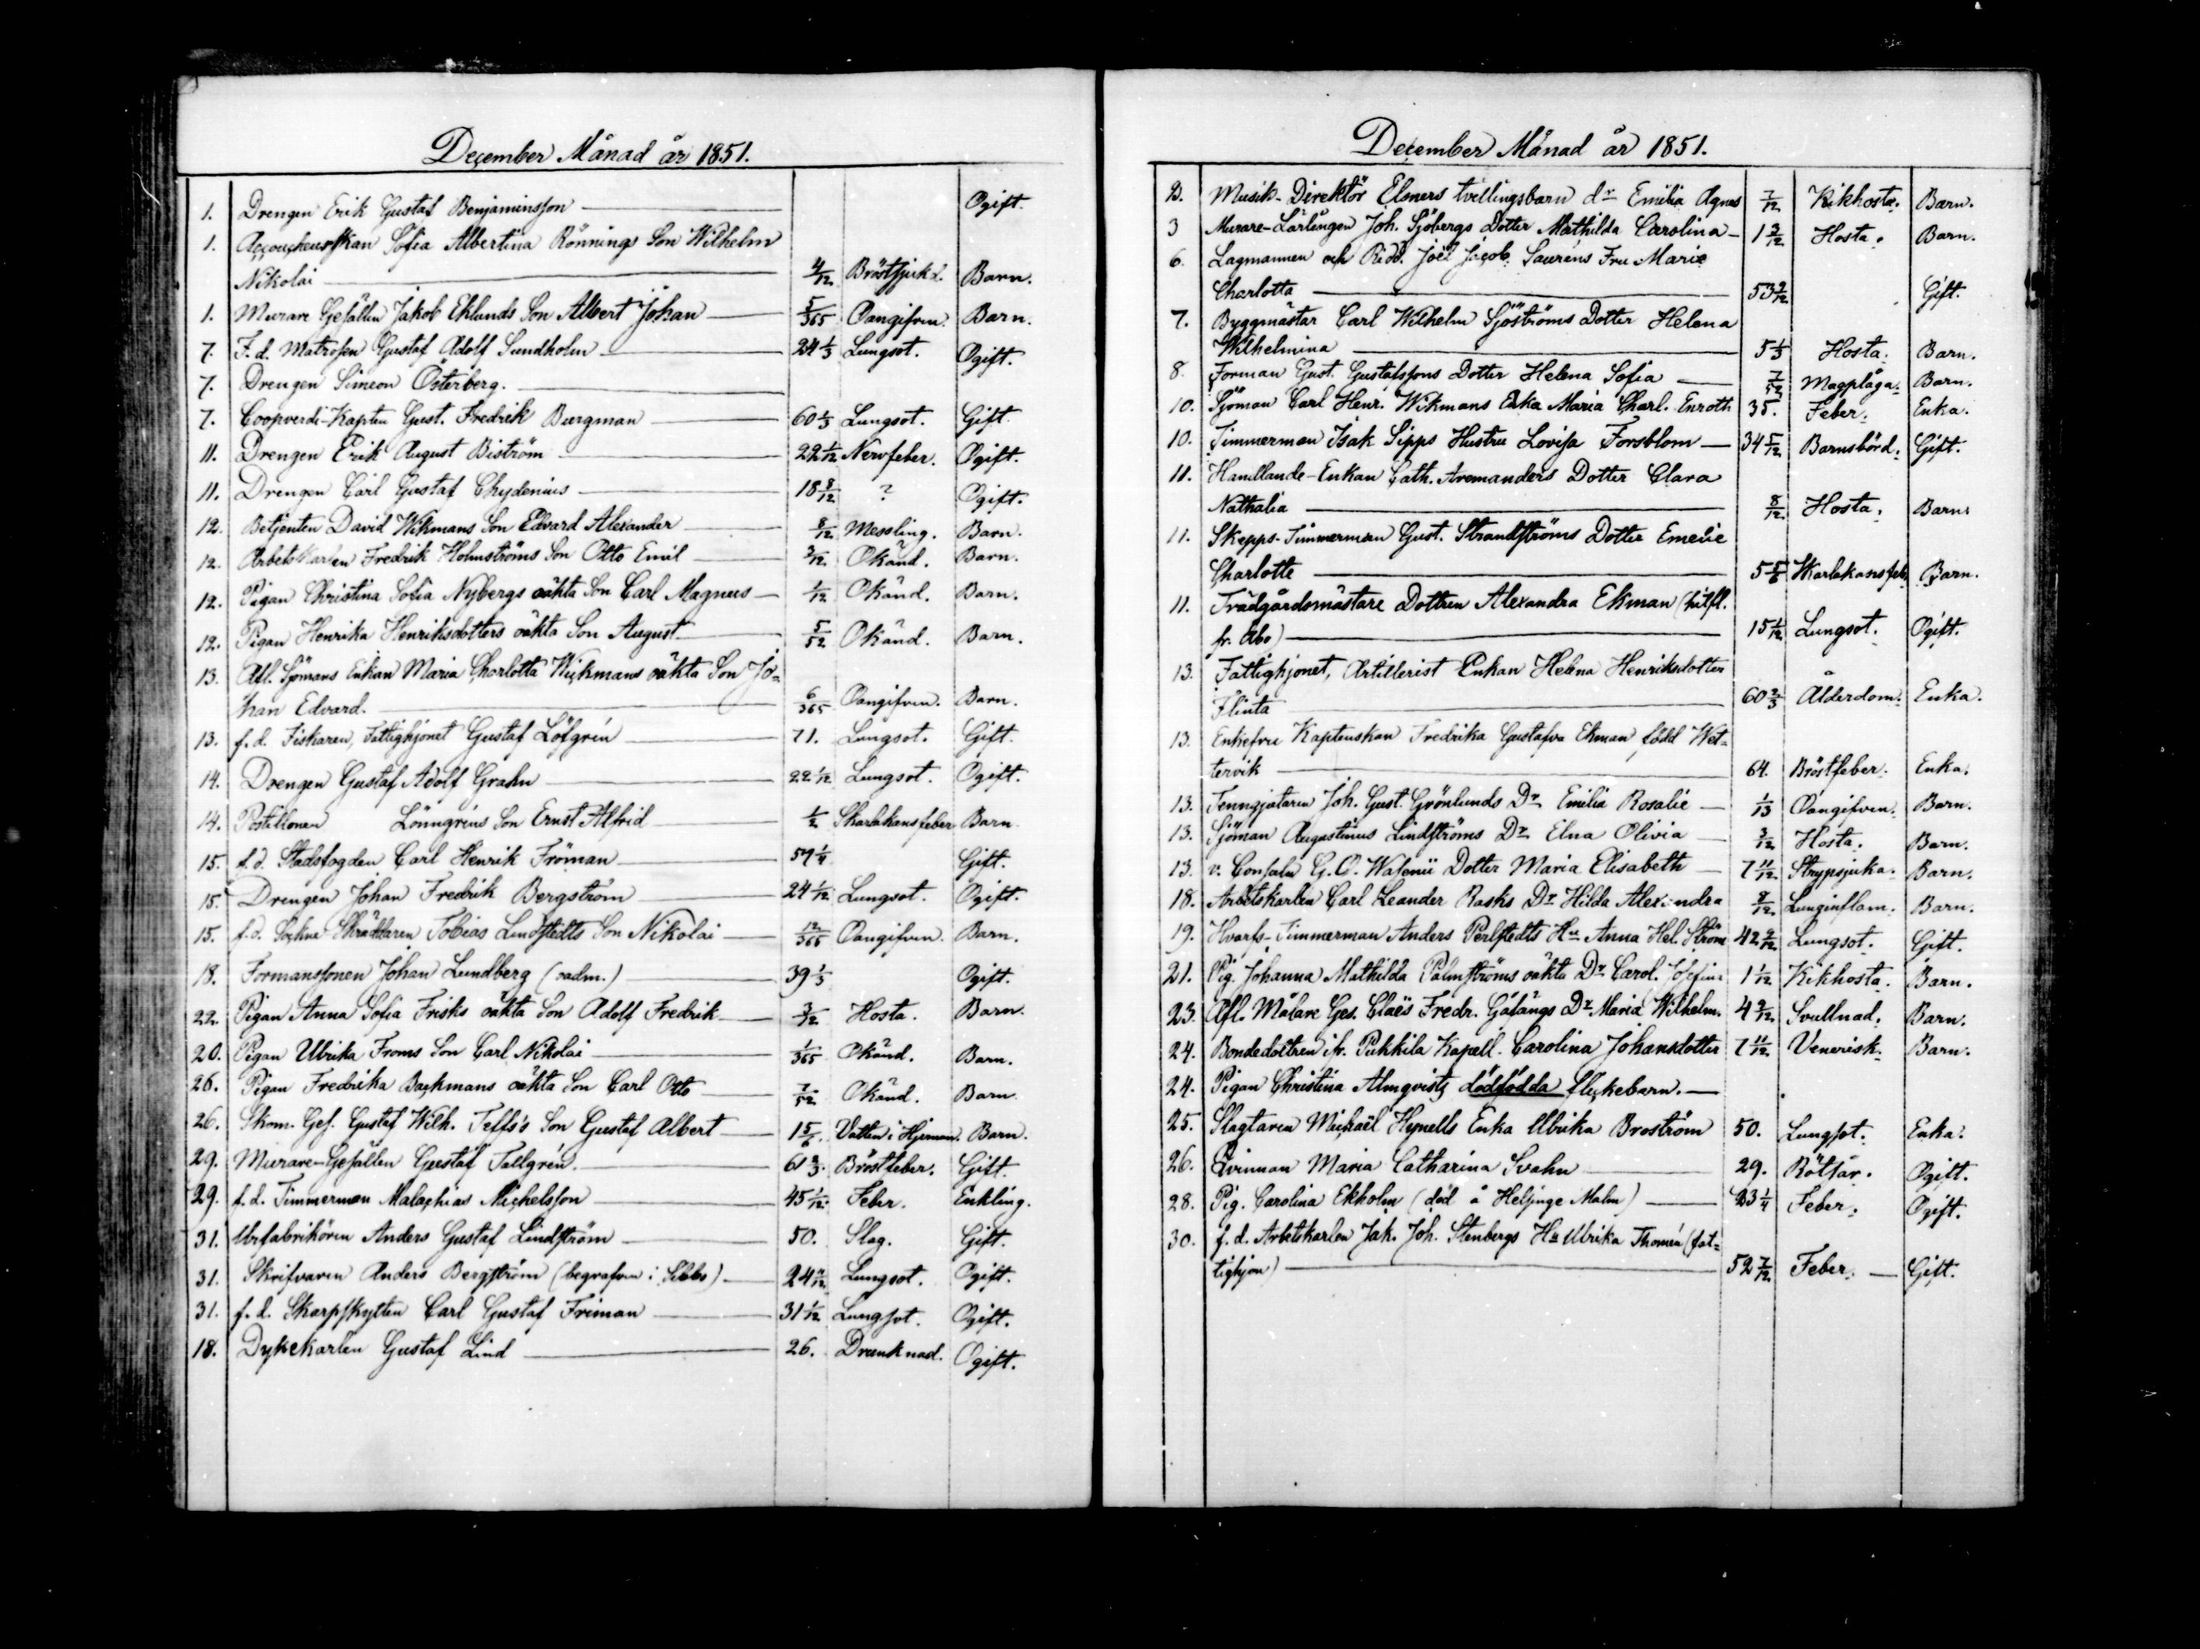 December Månad år 1851.
1. Drengen Erik Gustaf Benjaminsson Ogift.
1. Accoucheuskan Sofia Albertina Rönnings Son Wilhelm
Nikolai 4/12 Bröstsjukd. Barn.
1. Murare Gesällen Jakob Eklunds Son Albert Johan 5/365 Oangifven. Barn.
7. F. d. Matrosen Gustaf Adolf Sundholm 24 1/3 Lungsot. Ogift.
7. Drengen Simeon Österberg.
7. Coopverdi-Kapten Gust. Fredrik Bergman 60 1/3 Lungsot. Gift.
11. Drengen Erik August Biström 22 1/12 Nervfeber. Ogift.
11. Drengen Carl Gustaf Chydenius 18 8/12 ? Ogift.
12. Betjenten David Wikmans Son Edvard Alexander 8/12 Messling. Barn.
12. Arbetskarlen Fredrik Holmströms Son Otto Emil 3/12 Okänd. Barn.
12. Pigan Christina Sofia Nybergs oäkta Son Carl Magnus 1/12 Okänd. Barn.
12. Pigan Henrika Henriksdotters oäkta Son August 5/52 Okänd. Barn.
13. Afl. Sjömans Enkan Maria Charlotta Wickmans oäkta Son Jo-
han Edvard. 6/365 Oangifven. Barn.
13. f. d. Fiskaren, Fattighjonet Gustaf Löfgrén 71. Lungsot. Gift.
14. Drengen Gustaf Adolf Grahn 22 1/12 Lungsot. Ogift.
14. Postillonen Lönngréns Son Ernst Alfrid 1/2 Skarlakansfeber Barn.
15. f. d. Stadsfogden Carl Henrik Fröman 59 1/4 Gift.
15. Drengen Johan Fredrik Bergström 24 1/12 Lungsot. Ogift.
15. f. d. Sockne Skräddaren Tobias Lindstedts Son Nikolai 12/365 Oangifven. Barn.
18. Formanssonen Johan Lundberg (vadm.) 39 1/3 Ogift.
22. Pigan Anna Sofia Frisks oäkta Son Adolf Fredrik 3/12 Hosta. Barn.
20. Pigan Ulrika Froms Son Carl Nikolai 1/365 Okänd. Barn.
26. Pigan Fredrika Backmans oäkta Son Carl Otto 7/52 Okänd. Barn.
26. Skom. Ges. Gustaf Wilh. Teffs's Son Gustaf Albert 1 5/6. Vatten i Hjernan. Barn.
29. Murare-Gesällen Gustaf Tallgrén. 61 2/3. Bröstfeber. Gift.
29. f. d. Timmerman Malachias Michelsson 45 1/12. Feber. Enkling.
31. Urfabrikören Anders Gustaf Lindström 50. Slag. Gift.
31. Skrifvaren Anders Bergström (begrafven i Sibbo) 24 11/12 Lungsot. Ogift.
31. f. d. Skarpskytten Carl Gustaf Friman 31 1/12 Lungsot. Ogift.
18. Dykekarlen Gustaf Lind 26. Drunknad. Ogift.
December Månad år 1851.
2. Musik-Direktör Elsners tvillingsbarn dr Emilia Agnes 7/12 Kikhosta. Barn.
3 Murare-Lärlingen Joh. Sjöbergs Dotter Mathilda Carolina 1 3/12 Hosta. Barn.
6. Lagmannen och Ridd. Joël Jacob Sauréns Fru Marie
Charlotta 53 9/12 Gift.
7. Byggmästar Carl Wilhelm Sjöströms Dotter Helena
Wilhelmina 5 1/3 Hosta. Barn.
8. Forman Gust. Gustafssons Dotter Helena Sofia 7/52 Magplåga. Barn.
10. Sjöman Carl Henr. Wikmans Enka Maria Charl. Enroth 35. Feber. Enka.
10. Timmerman Isak Sipps Hustru Lovisa Forsblom 34 5/12 Barnsbörd. Gift.
11. Handlande-Enkan Cath. Avemanders Dotter Clara
Nathalia 8/12. Hosta. Barn.
11. Skepps-Timmerman Gust. Strandströms Dotter Emelie
Charlotte 5 5/6 Skarlakansfeb. Barn.
11. Trädgårdsmästare Dottren Alexandra Ekman (hitfl.
fr. Åbo) 15 1/12 Lungsot. Ogift.
13. Fattighjonet, Artillerist Enkan Helena Henriksdotter
Flinta 60 2/3 Ålderdom. Enka.
13. Enkefru Kaptenskan Fredrika Gustafva Ekman, född Wet-
tervik 64. Bröstfeber. Enka.
13. Tenngjutaren Joh. Gust. Grönlunds Dr Emilia Rosalie 1/13 Oangifven. Barn.
13. Sjöman Augustinus Lindströms Dr Elna Olivia 3/12 Hosta. Barn.
13. v. Consuln G. O. Wasenii Dotter Maria Elisabeth 7 11/12. Strypsjuka. Barn.
18. Arbetskarlen Carl Leander Rasks Dr Hilda Alexandra 8/12. Lunginflam. Barn.
19. Hvarfs-Timmerman Anders Perlstedts Hu Anna Hel. Ström 42 9/12 Lungsot. Gift.
21. Pig. Johanna Mathilda Palmströms oäkta Dr Carol. Josefina 1 1/12 Kikhosta. Barn.
23. Afl. Målare Ges. Claës Fredr. Gåfångs Dr Maria Wilhelm. 4 2/12. Svullnad. Barn.
24. Bondedottren ifr. Pukkila Kapell. Carolina Johansdotter 7 11/12. Venerisk. Barn.
24. Pigan Christina Almqvists dödfödda flickebarn.
25. Slagtaren Michaël Hynells Enka Ulrika Broström 50. Lungsot. Enka.
26. Qvinnan Maria Catharina Svahn 29. Rötsår. Ogift.
28. Pig. Carolina Ekholm (död å Helsinge Malm) 23 1/4 Feber. Ogift.
30. f. d. Arbetskarlen Jak. Joh. Stenbergs Hu Ulrika Thomén (fat-
tighjon) 52 7/12 Feber. Gift.